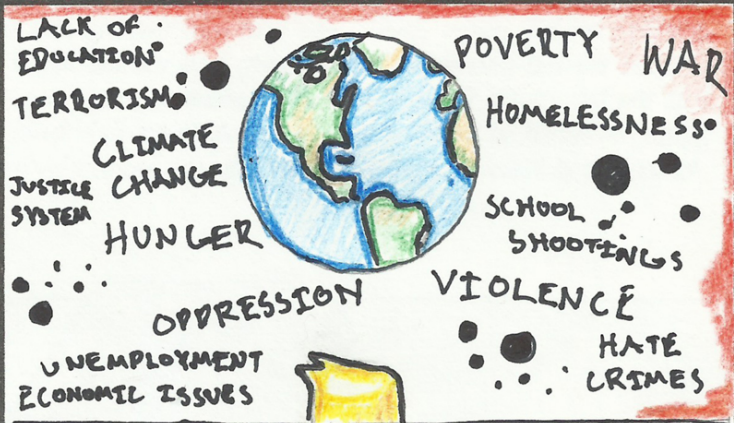 LACK OF
EDUCATION
TERRORISM
CLIMATE
CHANGE
JUSTICE
SYSTEM
HUNGER
OPPRESSION
UNEMPLOYMENT
ECONOMIC ISSUES
POVERTY
WAR
HOMELESSNESS
SCHOOL
SHOOTINGS
VIOLENCE
HATE
CRIMES